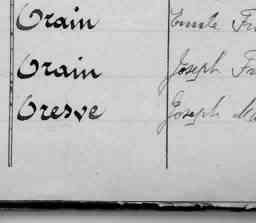 Orain Emile Fr
Orain Joseph Fr
Oresve Joseph Ma